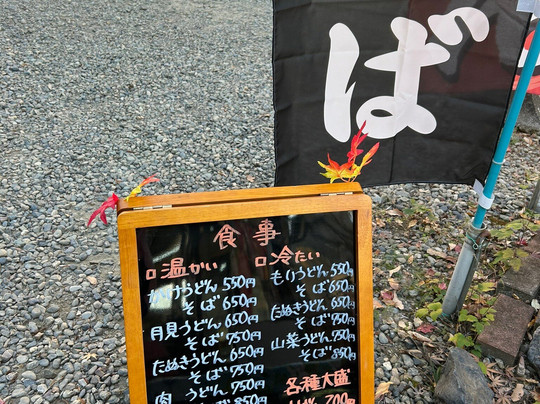 ば
食事
□温かい
かけうどん 550円
そば 650円
月見うどん 650円
そば 750円
たぬきうどん 650円
そば 750円
肉 うどん 750円
そば 850円
□冷たい
もりうどん 550円
そば 650円
たぬきうどん 650円
そば 750円
山菜うどん 750円
そば 850円
各種大盛
200円